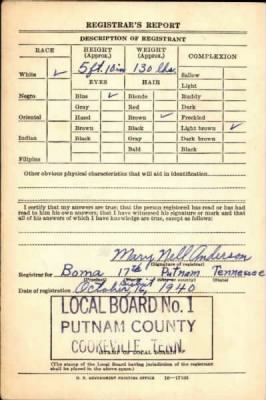 REGISTRAR'S REPORT
DESCRIPTION OF REGISTRANT
RACE HEIGHT (Approx.) WEIGHT (Approx.) COMPLEXION
White ✓ 5 ft. 10 in 130 lbs. Sallow
EYES HAIR Light
Negro Blue ✓ Blonde Ruddy
Gray Red Dark
Oriental Hazel Brown ✓ Freckled
Brown Black Light brown ✓
Indian Black Gray Dark brown
Bald Black
Filipino
Other obvious physical characteristics that will aid in identification
I certify that my answers are true; that the person registered has read or has
read to him his own answers; that I have witnessed his signature or mark and that
all of his answers of which I have knowledge are true, except as follows:
Mary Nell Anderson
(Signature of registrar)
Registrar for Boma 17th Putnam Tennessee
(Precinct) (City or county) (State)
Date of registration October 16, 1940
LOCAL BOARD No. 1
PUTNAM COUNTY
COOKEVILLE, TENN.
(STAMP OF LOCAL BOARD)
(The stamp of the Local Board having jurisdiction of the registrant
shall be placed in the above space)
U. S. GOVERNMENT PRINTING OFFICE 16—17105